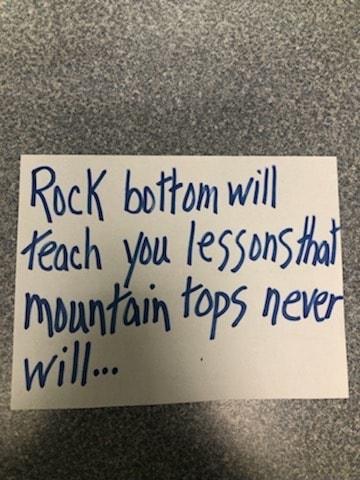 Rock bottom will
teach you lessons that
mountain tops never
will...